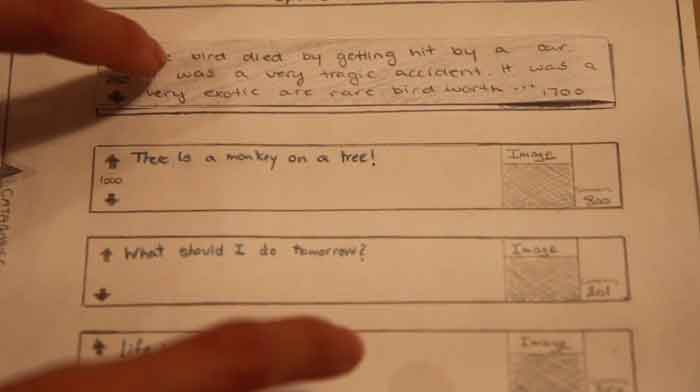 bird died by getting hit by a car.
was a very tragic accident. It was a
very exotic are rare bird worth ... 1700
Tree is a monkey on a tree!
Image
1000
800
What should I do tomorrow?
Image
201
Life
Image
CATAGORIES